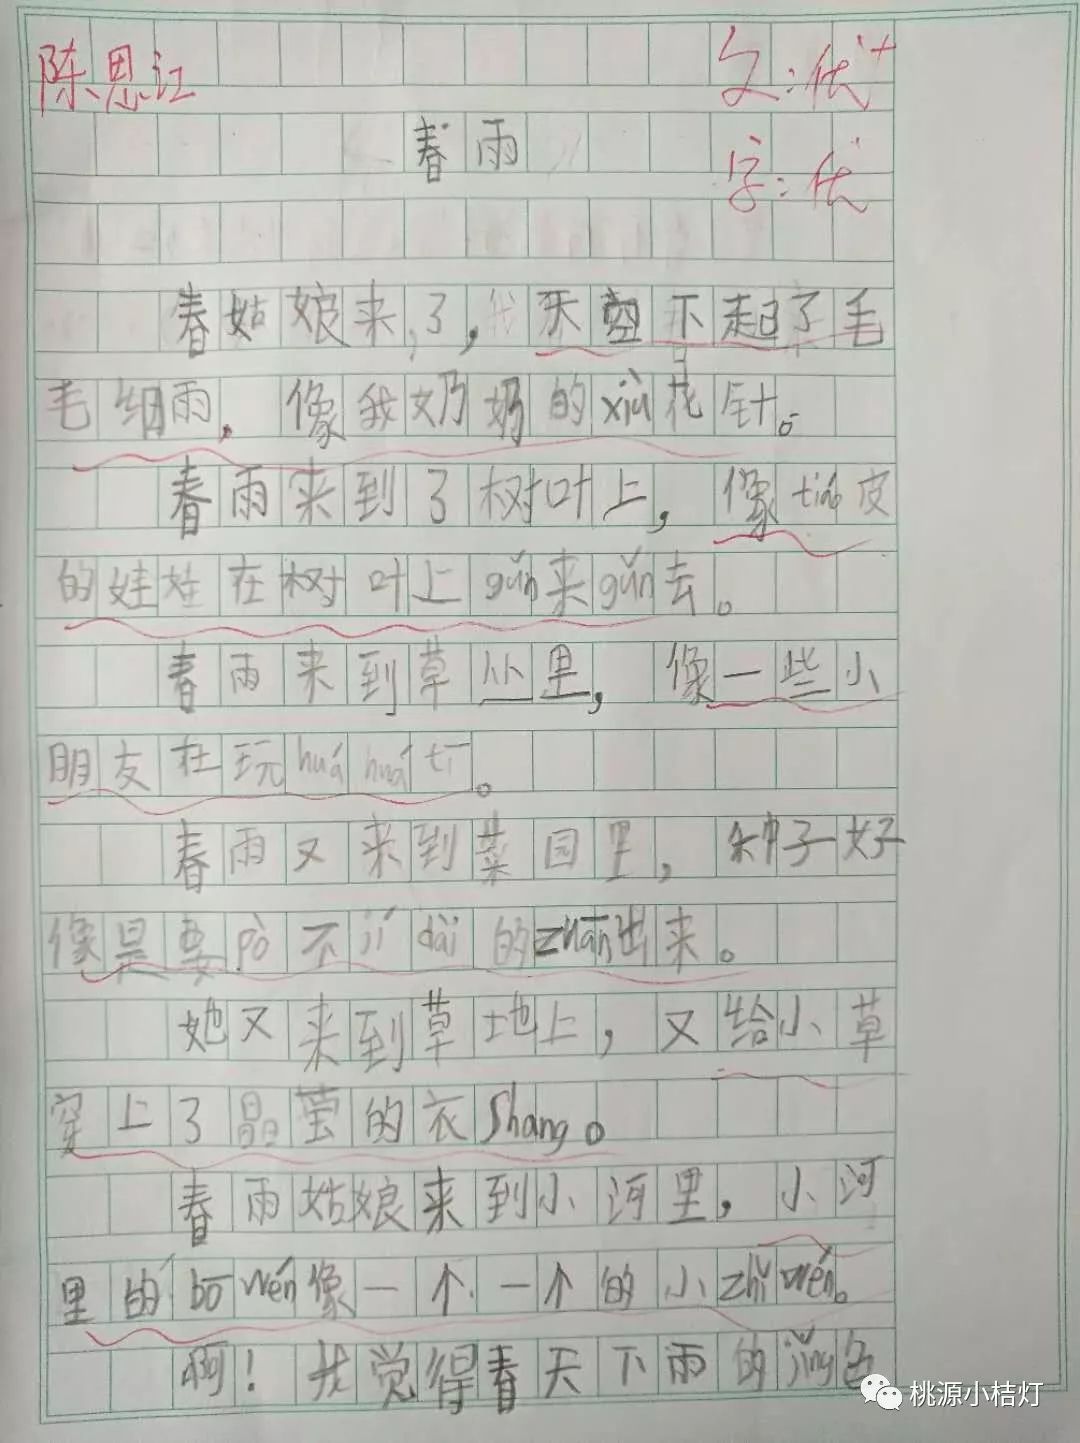 陈思江 文:优+
春雨
字:优
春姑娘来了,我天空下起了毛
毛细雨,像我奶奶的xiù花针。
春雨来到了树叶上,像tiáo皮
的娃娃在树叶上gǔn来gǔn去。
春雨来到草丛里,像一些小
朋友在玩huá huá tī。
春雨又来到菜园里,种子好
像是要pò不jí dài的zuān出来。
她又来到草地上,又给小草
穿上了晶莹的衣shang。
春雨姑娘来到小河里,小河
里的bō wén像一个一个的小zhǐ wén。
啊!我觉得春天下雨的jǐng色
桃源小桔灯